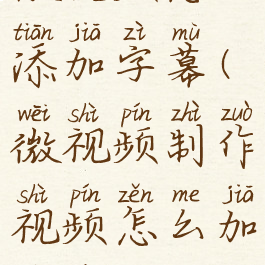 tiān jiā zì mù
添加字幕(
wēi shì pín zhì zuò
微视频制作
shì pín zěn me jiā
视频怎么加